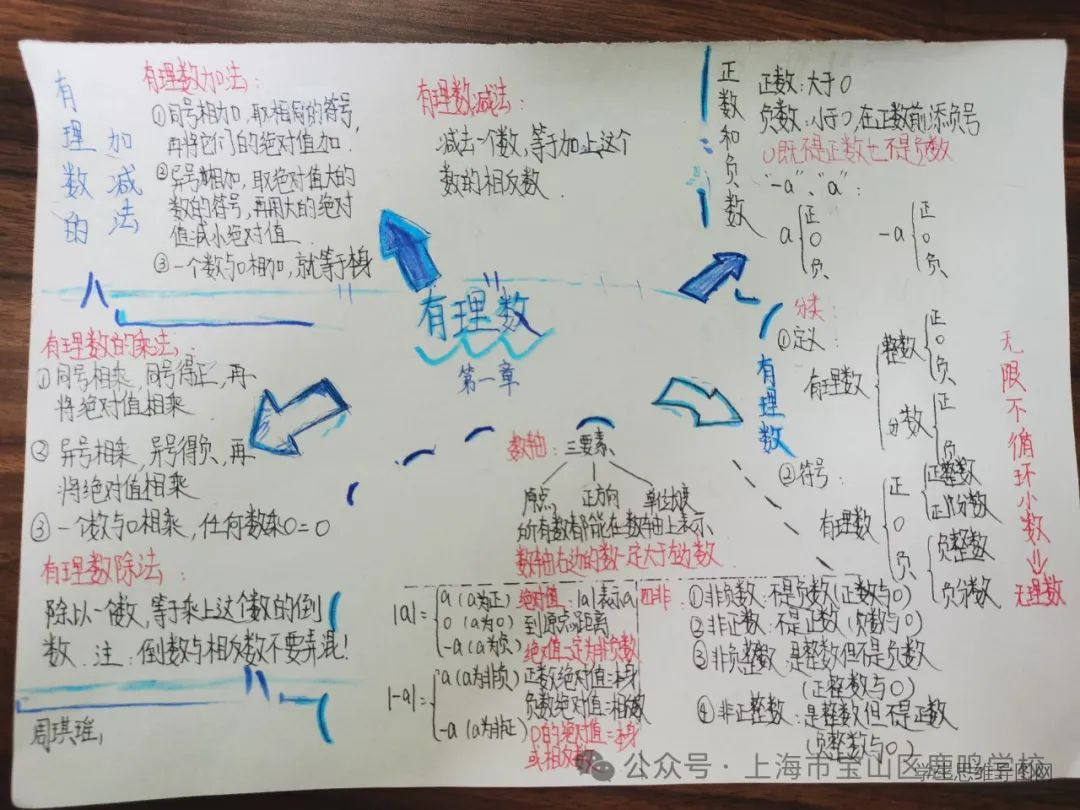 有理数的
加减法
有理数加法：
①同号相加，取相同的符号，
再将它们的绝对值加．
②异号相加，取绝对值大的
数的符号，再用大的绝对
值减小绝对值．
③一个数与0相加，就等于本身
有理数减法：
减去一个数，等于加上这个
数的相反数．
正数和负数
正数：大于0
负数：小于0，在正数前添负号
0既不是正数也不是负数
"-a"、"a"：
a { 正 0 负
-a { 正 0 负
有理数
第一章
有理数的乘法：
①同号相乘，同号得正，再
将绝对值相乘
②异号相乘，异号得负，再
将绝对值相乘
③一个数与0相乘，任何数乘0=0
有理数除法：
除以一个数，等于乘上这个数的倒
数．注：倒数与相反数不要弄混！
周琪瑶
数轴：三要素
原点 正方向 单位长度
所有数都能在数轴上表示
数轴右边的数一定大于左边数
有理数
分类：
①定义：
有理数 { 整数 { 正 0 负
分数 { 正 负
②符号：
有理数 { 正 { 正整数 正分数
0
负 { 负整数 负分数
无限不循环小数⇒无理数
|a|= { a（a为正）
0（a为0）
-a（a为负）
|-a|= { a（a为非负）
-a（a为非正）
绝对值：|a|表示a
到原点距离
绝对值一定为非负数
正数绝对值=本身
负数绝对值=相反数
0的绝对值=本身
或相反数
四非：①非负数：不是负数（正数与0）
②非正数：不是正数（负数与0）
③非负整数：是整数但不是负数
（正整数与0）
④非正整数：是整数但不是正数
（负整数与0）
公众号·上海市宝山区鹿鸣学校